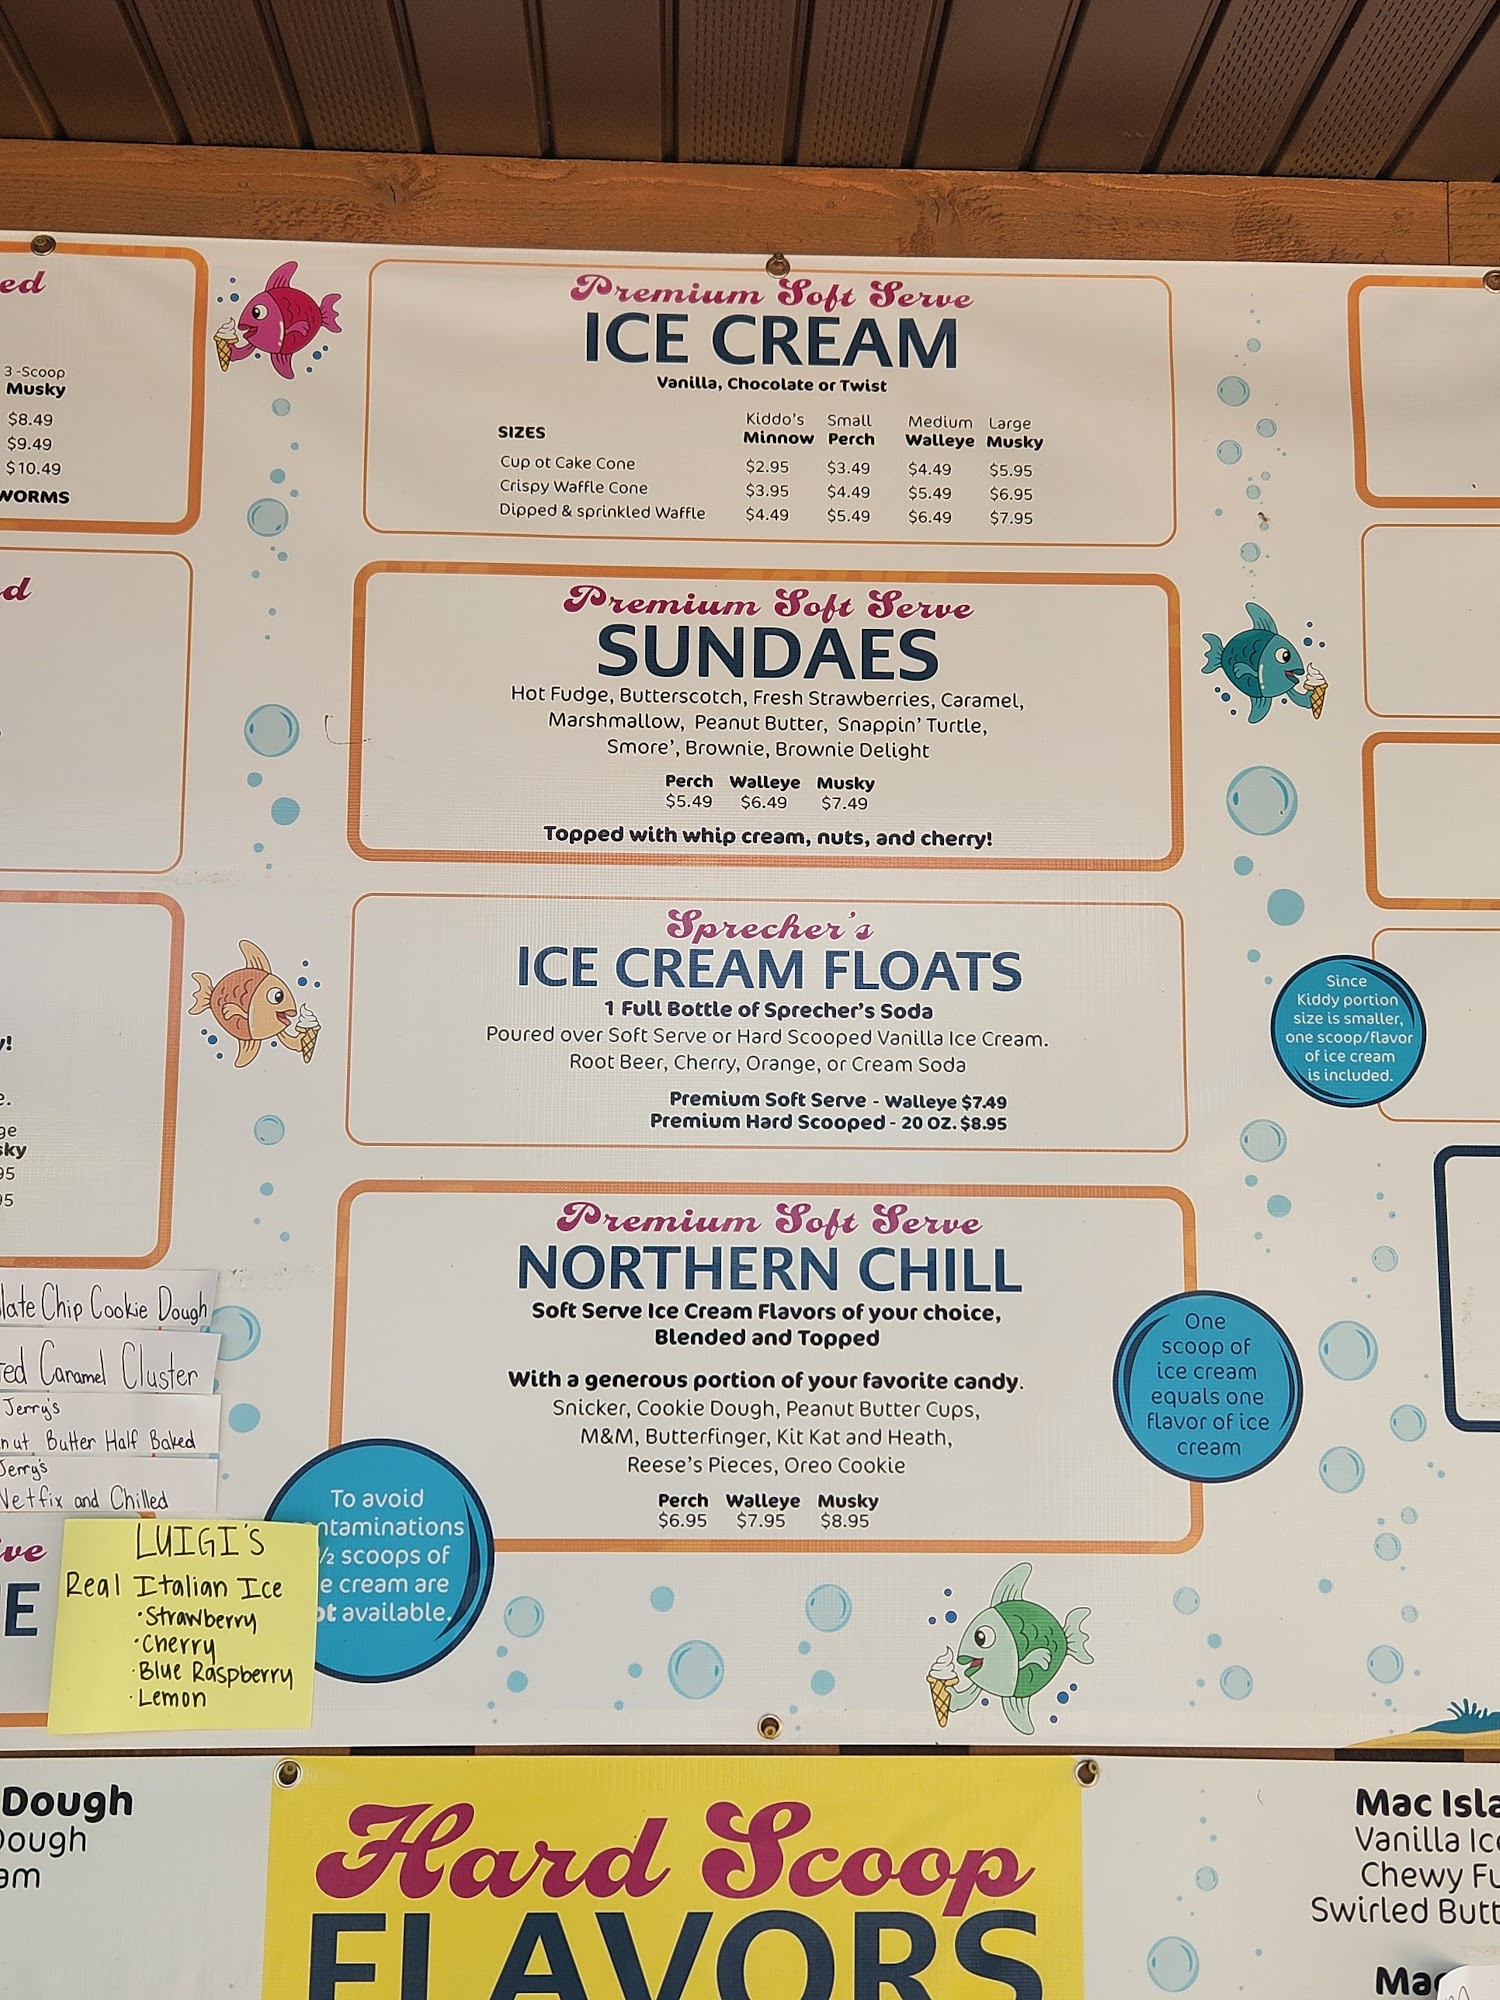 ed
3 -Scoop
Musky
$8.49
$9.49
$10.49
WORMS
d
y!
e.
ge
sky
95
95
Premium Soft Serve
ICE CREAM
Vanilla, Chocolate or Twist
Kiddo's Small Medium Large
SIZES Minnow Perch Walleye Musky
Cup ot Cake Cone $2.95 $3.49 $4.49 $5.95
Crispy Waffle Cone $3.95 $4.49 $5.49 $6.95
Dipped & sprinkled Waffle $4.49 $5.49 $6.49 $7.95
Premium Soft Serve
SUNDAES
Hot Fudge, Butterscotch, Fresh Strawberries, Caramel,
Marshmallow, Peanut Butter, Snappin' Turtle,
Smore', Brownie, Brownie Delight
Perch Walleye Musky
$5.49 $6.49 $7.49
Topped with whip cream, nuts, and cherry!
Sprecher's
ICE CREAM FLOATS
1 Full Bottle of Sprecher's Soda
Poured over Soft Serve or Hard Scooped Vanilla Ice Cream.
Root Beer, Cherry, Orange, or Cream Soda
Premium Soft Serve - Walleye $7.49
Premium Hard Scooped - 20 OZ. $8.95
Since
Kiddy portion
size is smaller,
one scoop/flavor
of ice cream
is included.
Premium Soft Serve
NORTHERN CHILL
Soft Serve Ice Cream Flavors of your choice,
Blended and Topped
With a generous portion of your favorite candy.
Snicker, Cookie Dough, Peanut Butter Cups,
M&M, Butterfinger, Kit Kat and Heath,
Reese's Pieces, Oreo Cookie
Perch Walleye Musky
$6.95 $7.95 $8.95
One
scoop of
ice cream
equals one
flavor of ice
cream
late Chip Cookie Dough
ed Caramel Cluster
Jerry's
nut Butter Half Baked
Jerry's
Netfix and Chilled
To avoid
ntaminations
1/2 scoops of
e cream are
ot available.
ve
E
LUIGI'S
Real Italian Ice
• Strawberry
• Cherry
• Blue Raspberry
• Lemon
Dough
Dough
am
Hard Scoop
FLAVORS
Mac Isla
Vanilla Ice
Chewy Fu
Swirled Butt
Mac